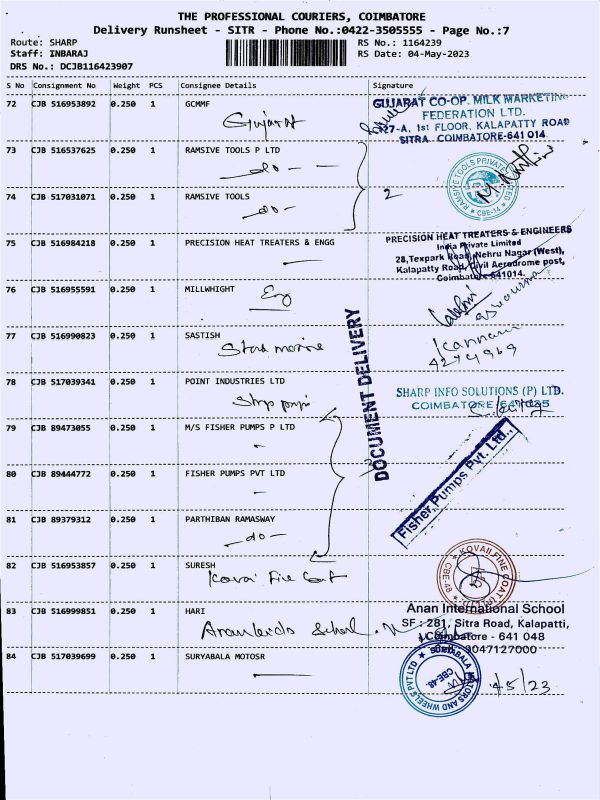 THE PROFESSIONAL COURIERS, COIMBATORE
Delivery Runsheet - SITR - Phone No.:0422-3505555 - Page No.:7
Route: SHARP
RS No.: 1164239
Staff: INBARAJ
RS Date: 04-May-2023
DRS No.: DCJB116423907
S No Consignment No Weight PCS Consignee Details Signature
72 CJB 516953892 0.250 1 GCMMF
Gujarat
GUJARAT CO-OP. MILK MARKETING
FEDERATION LTD.
127-A, 1st FLOOR, KALAPATTY ROAD
SITRA COIMBATORE-641 014
73 CJB 516537625 0.250 1 RAMSIVE TOOLS P LTD
— do — —
74 CJB 517031071 0.250 1 RAMSIVE TOOLS
— do —
2
RAMSIVE TOOLS PRIVATE LIMITED
★ CBE-14 ★
75 CJB 516984218 0.250 1 PRECISION HEAT TREATERS & ENGG
PRECISION HEAT TREATERS & ENGINEERS
India Private Limited
28,Texpark Road,Nehru Nagar (West),
Kalapatty Road, Civil Aerodrome post,
Coimbatore-641014.
76 CJB 516955591 0.250 1 MILLWHIGHT
Eng
77 CJB 516990823 0.250 1 SASTISH
Kannan
4274969
78 CJB 517039341 0.250 1 POINT INDUSTRIES LTD
SHARP INFO SOLUTIONS (P) LTD.
COIMBATORE
DOCUMENT DELIVERY
79 CJB 89473055 0.250 1 M/S FISHER PUMPS P LTD
80 CJB 89444772 0.250 1 FISHER PUMPS PVT LTD
81 CJB 89379312 0.250 1 PARTHIBAN RAMASWAY
— do —
Fisher Pumps Pvt. Ltd.,
82 CJB 516953857 0.250 1 SURESH
Kovai Fire Coat
83 CJB 516999851 0.250 1 HARI
School
Anan International School
SF : 281, Sitra Road, Kalapatti,
Coimbatore - 641 048
9047127000
84 CJB 517039699 0.250 1 SURYABALA MOTOSR
SURYABALA MOTORS AND WHEELS PVT LTD
CBE-48.
4/5/23